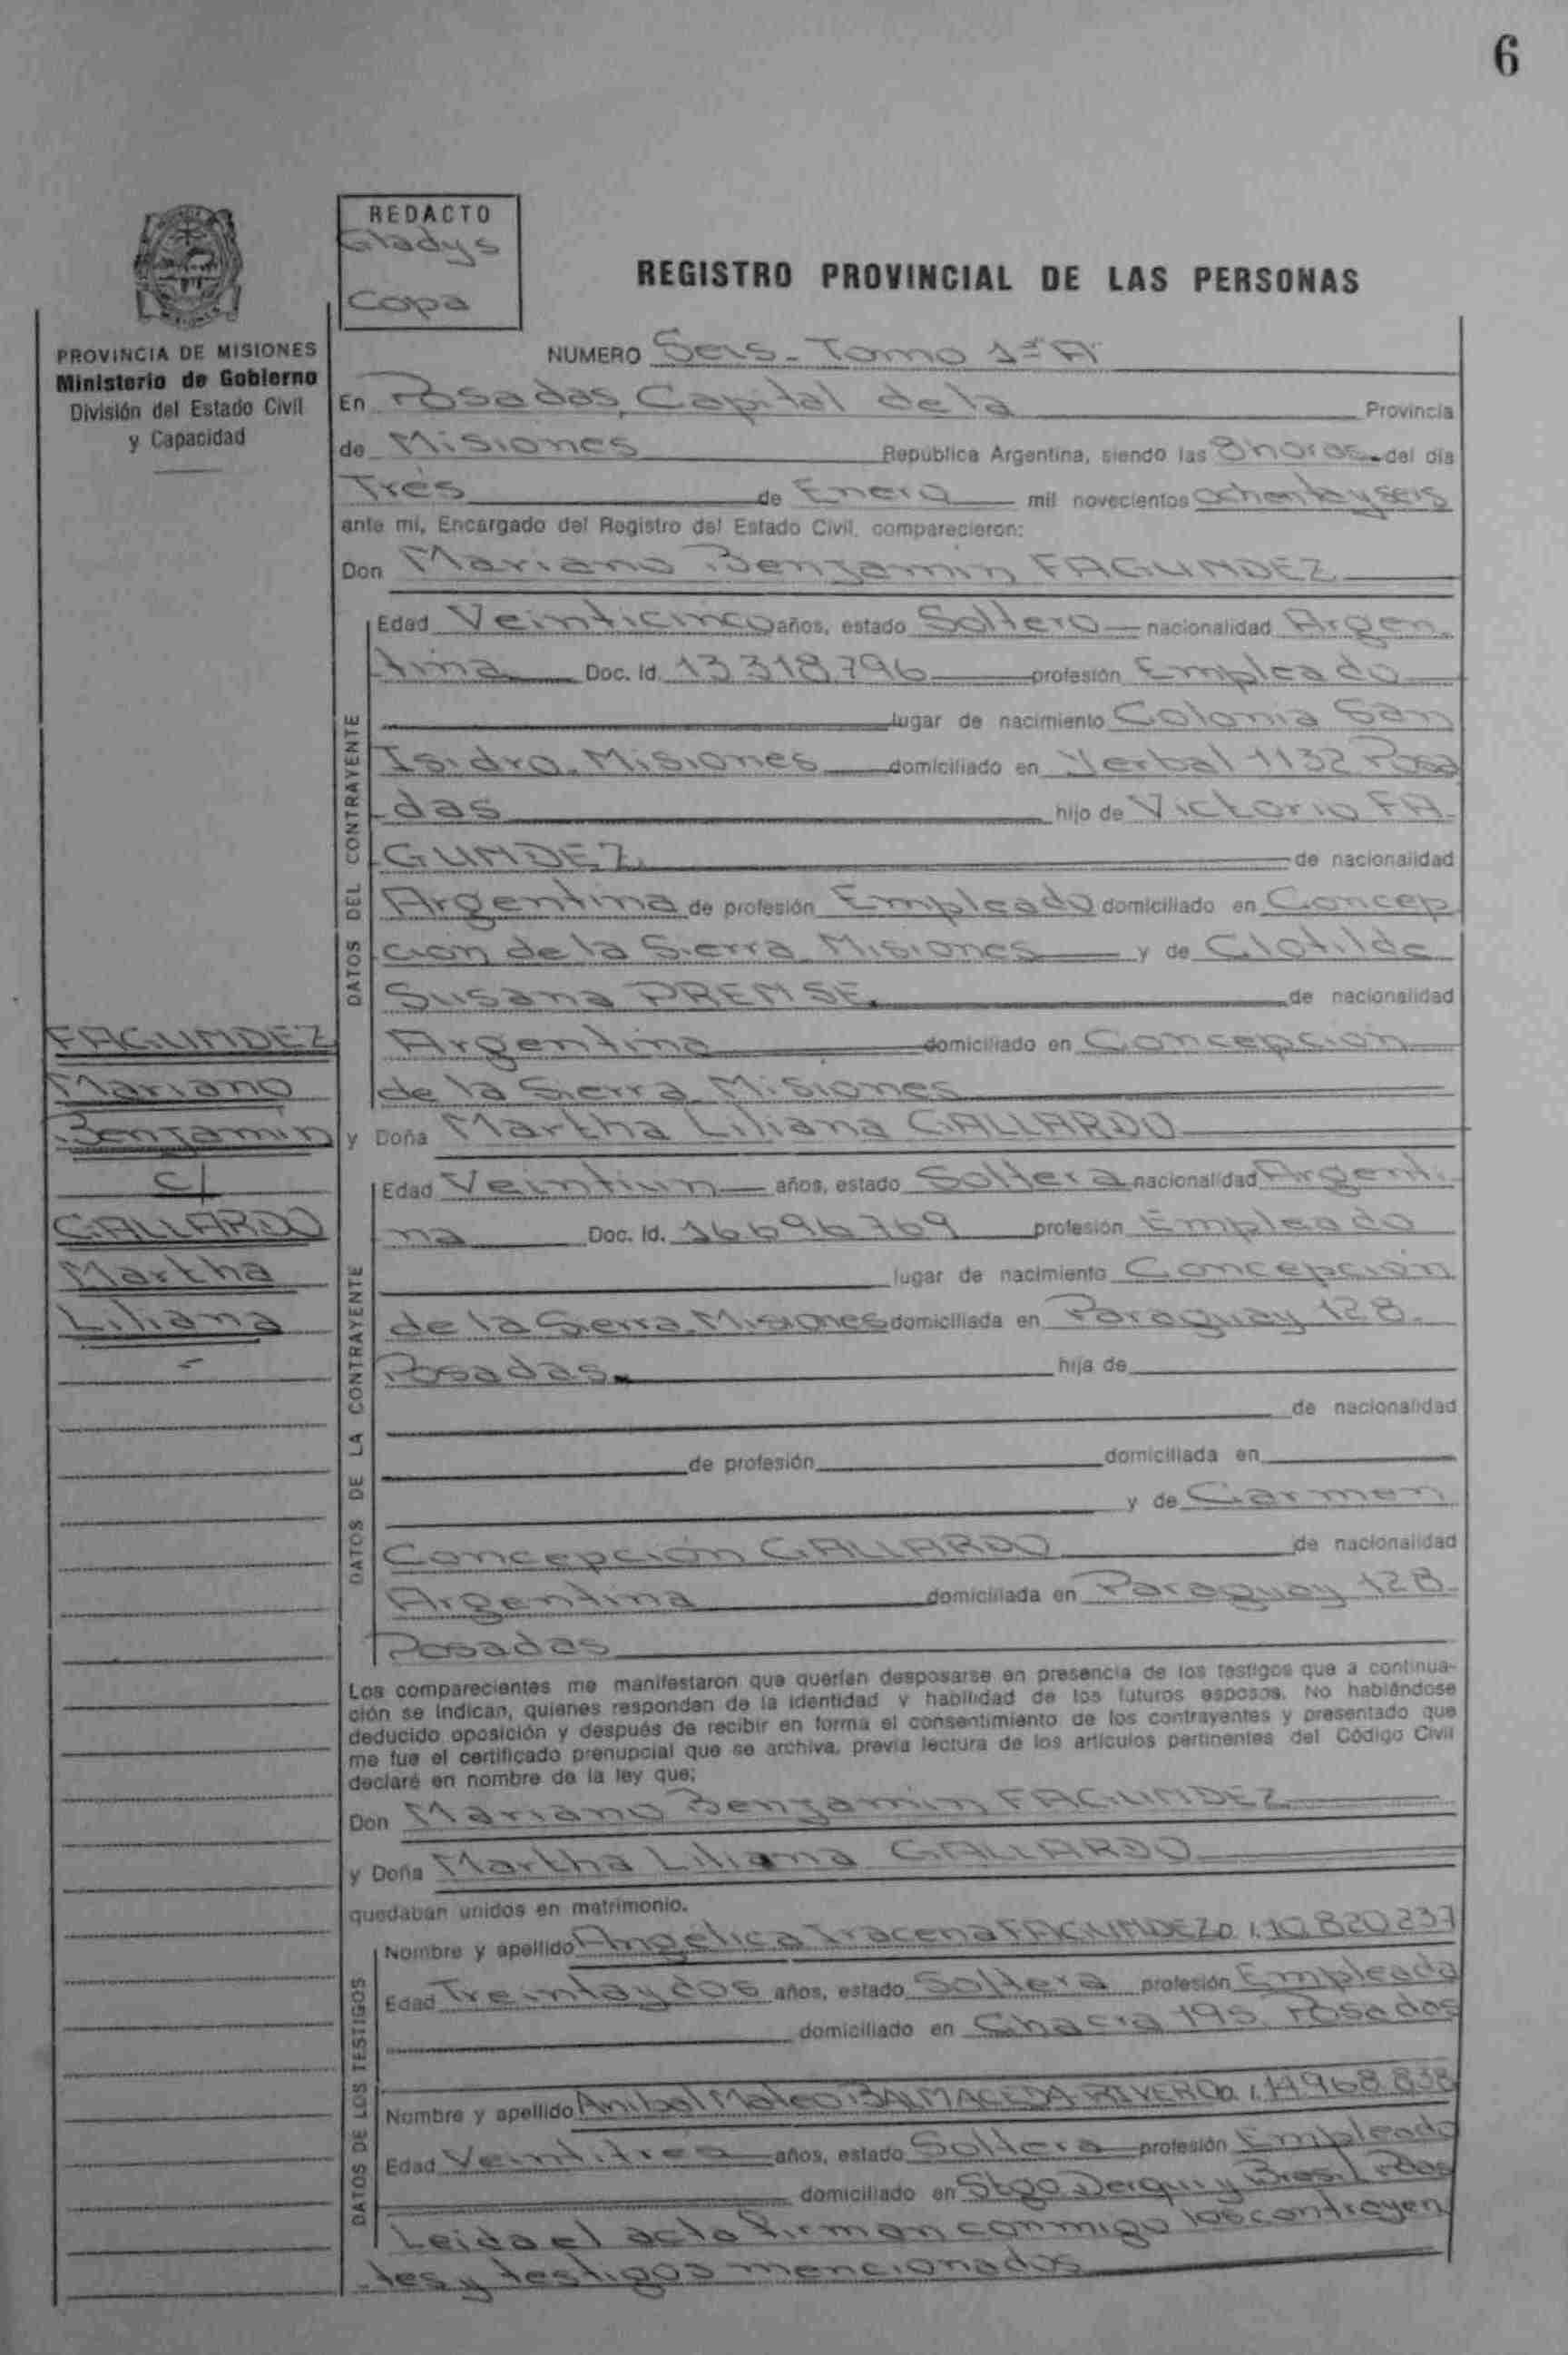 6
REDACTO
Gladys
Copa
REGISTRO PROVINCIAL DE LAS PERSONAS
PROVINCIA DE MISIONES
Ministerio de Gobierno
División del Estado Civil
y Capacidad
NUMERO Seis - Tomo 1º A
En Posadas, Capital de la Provincia
de Misiones República Argentina, siendo las 8 horas del día
Tres de Enero mil novecientos ochenta y seis
ante mí, Encargado del Registro del Estado Civil, comparecieron:
Don Mariano Benjamin FAGUNDEZ
DATOS DEL CONTRAYENTE
Edad Veinticinco años, estado Soltero nacionalidad Argen
tina Doc. Id. 13318796 profesión Empleado
lugar de nacimiento Colonia San
Isidro. Misiones domiciliado en Yerbal 1132 Posa
das hijo de Victorio FA
GUNDEZ de nacionalidad
Argentina de profesión Empleado domiciliado en Concep
cion de la Sierra Misiones y de Clotilde
Susana PREMSE de nacionalidad
Argentina domiciliado en Concepcion
de la Sierra Misiones
FAGUNDEZ
Mariano
Benjamin
c/
GALLARDO
Martha
Liliana
y Doña Martha Liliana GALLARDO
DATOS DE LA CONTRAYENTE
Edad Veintiun años, estado Soltera nacionalidad Argenti
na Doc. Id. 16696769 profesión Empleado
lugar de nacimiento Concepción
de la Sierra. Misiones domiciliada en Paraguay 128.
Posadas. hija de
de nacionalidad
de profesión domiciliada en
y de Carmen
Concepción GALLARDO de nacionalidad
Argentina domiciliada en Paraguay 128.
Posadas
Los comparecientes me manifestaron que querían desposarse en presencia de los testigos que a continua-
ción se indican, quienes responden de la identidad y habilidad de los futuros esposos. No habiéndose
deducido oposición y después de recibir en forma el consentimiento de los contrayentes y presentado que
me fue el certificado prenupcial que se archiva, previa lectura de los artículos pertinentes del Código Civil
declaré en nombre de la ley que;
Don Mariano Benjamin FAGUNDEZ
y Doña Martha Liliana GALLARDO
quedaban unidos en matrimonio.
DATOS DE LOS TESTIGOS
Nombre y apellido Angelica FAGUNDEZ D.I. 10.820.237
Edad Treinta y dos años, estado Soltera profesión Empleada
domiciliado en Chacra 195. Posadas
Nombre y apellido Anibal Mateo BALMACEDA RIVERO D.I. 14.968.838
Edad Veintitres años, estado Soltero profesión Empleado
domiciliado en Stgo Derqui y Brasil Pdas
Leida el acta firman conmigo los contrayen
tes y testigos mencionados